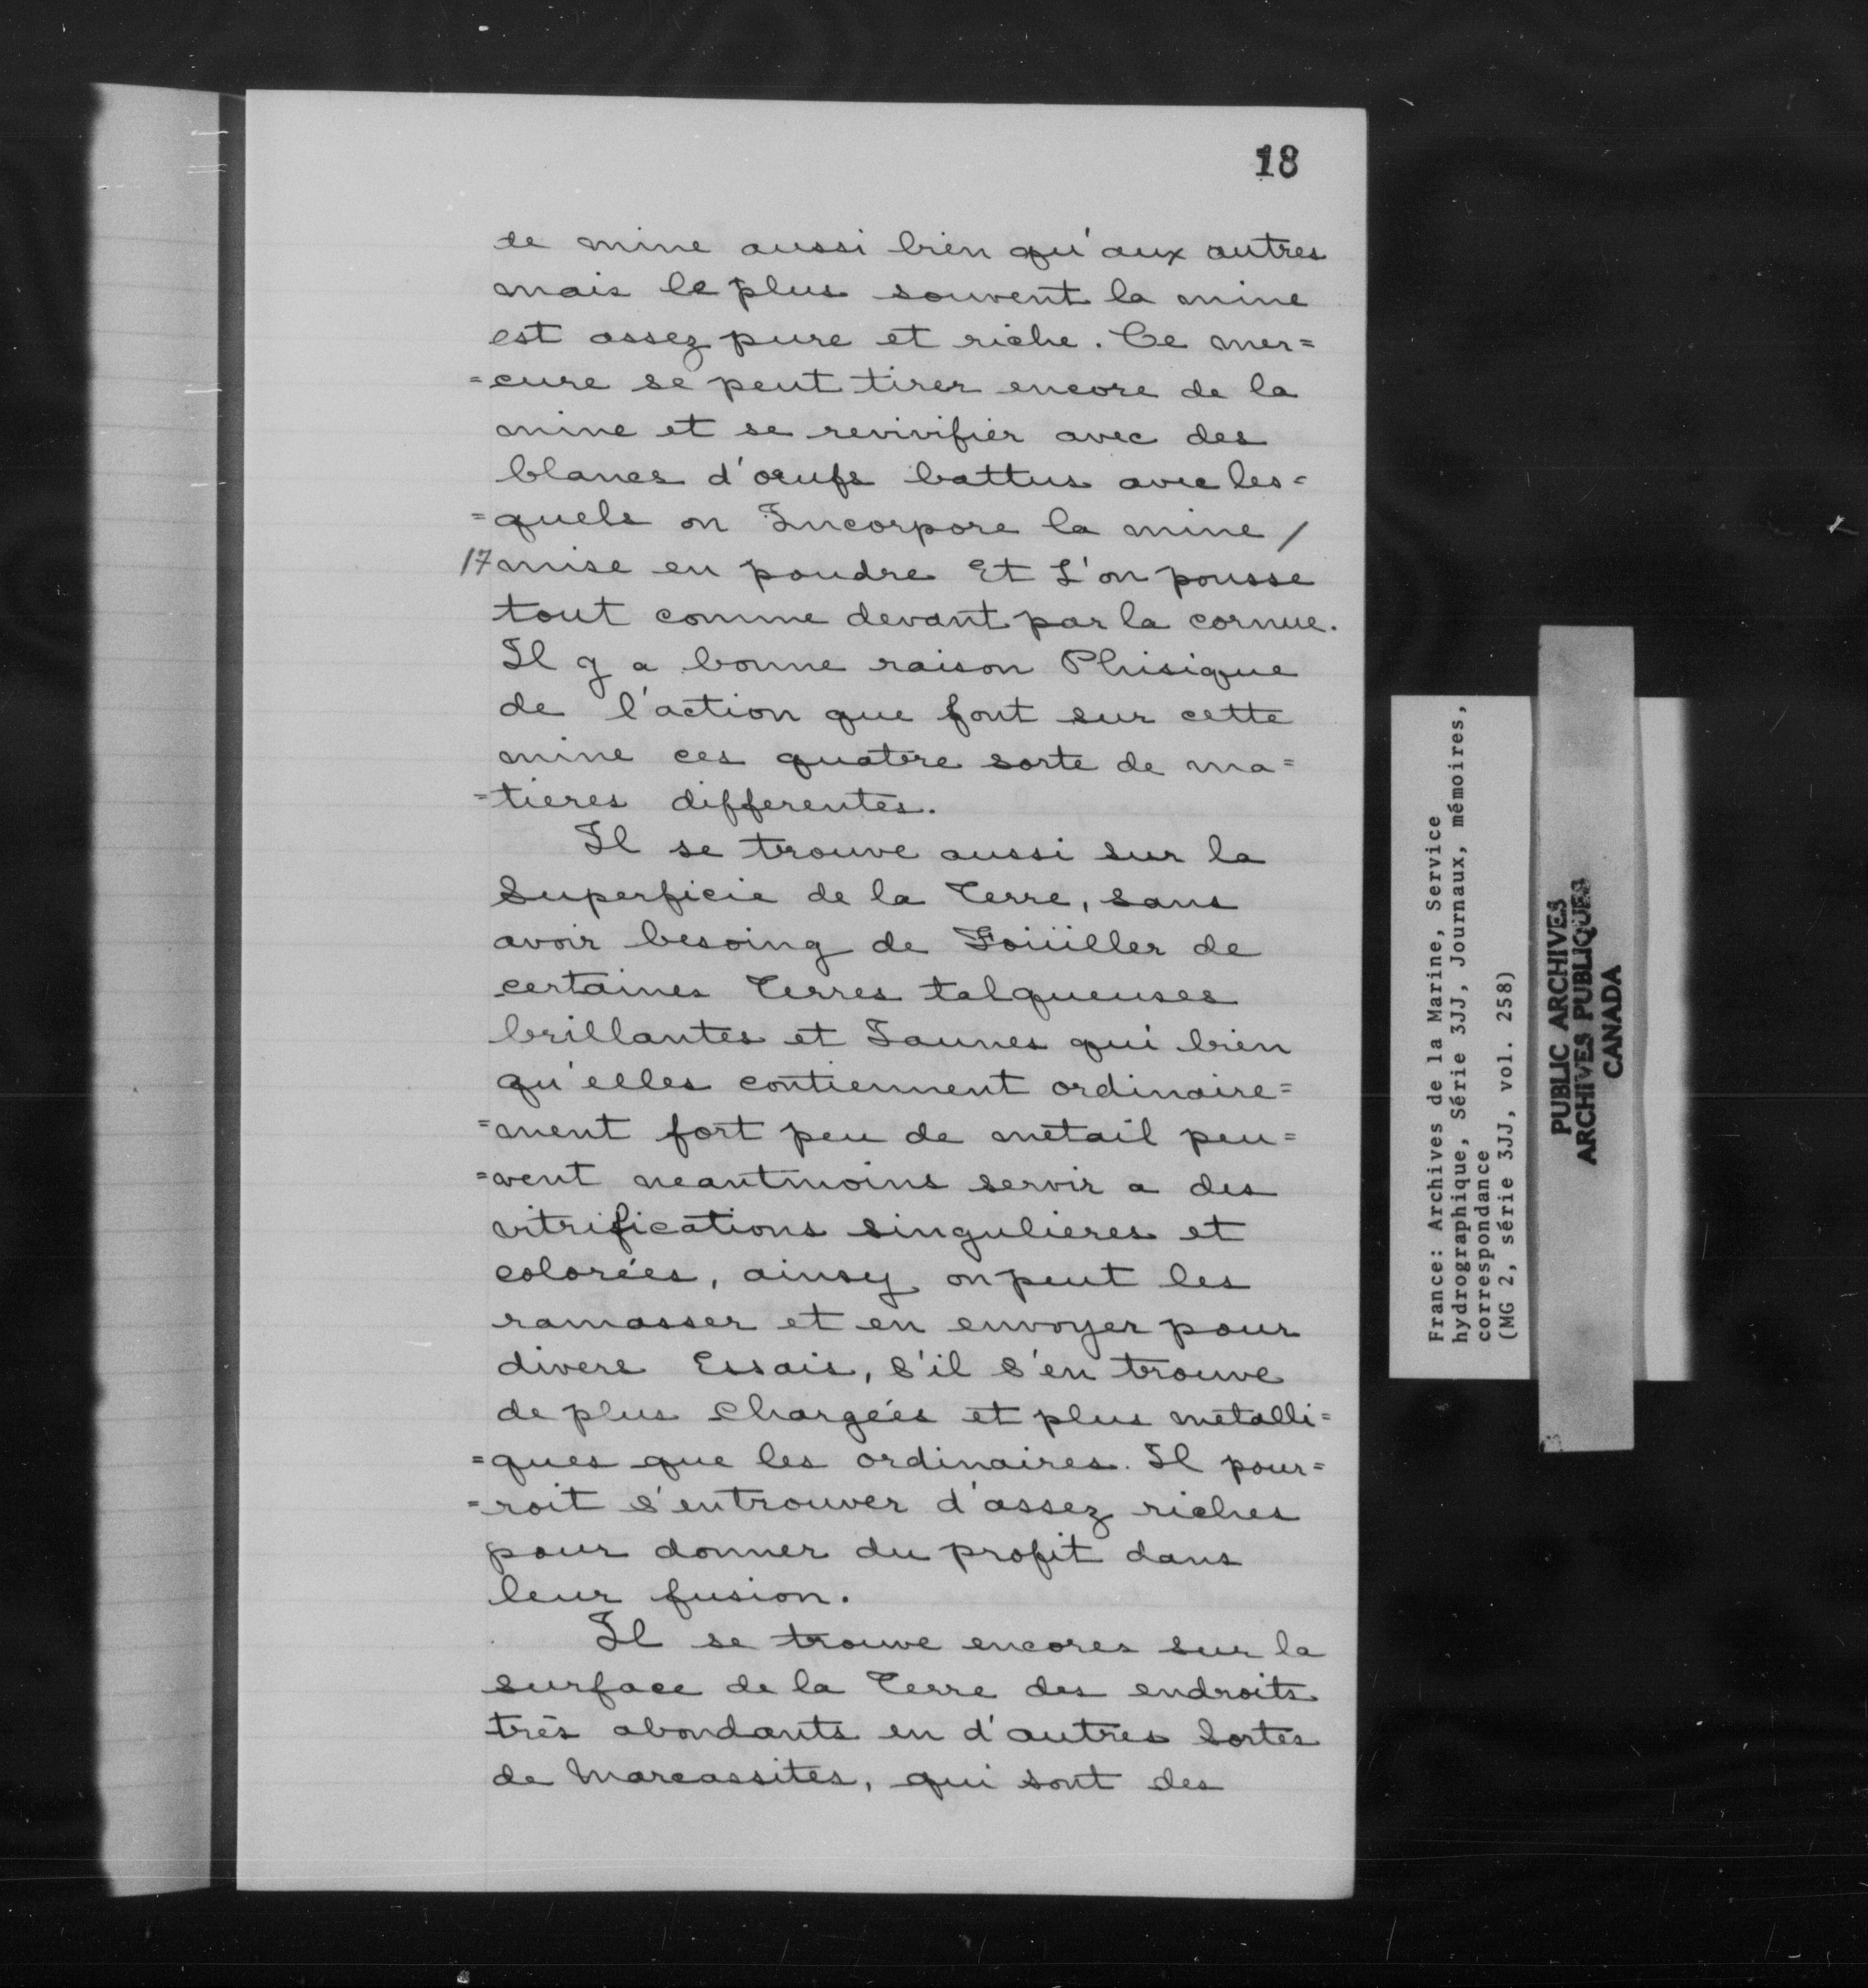 18
te mine aussi bien qu'aux autres
mais le plus souvent la mine
est assez pure et riche. Ce mer=
=cure se peut tirer encore de la
mine et se revivifier avec des
blancs d'œufs battus avec les=
=quels on Incorpore la mine /
17 mise en poudre Et L'on pousse
tout comme devant par la cornue.
Il y a bonne raison Phisique
de l'action que font sur cette
mine ces quatre sorte de ma=
=tieres differentes.
Il se trouve aussi sur la
Superficie de la Terre, sans
avoir besoing de Foüiller de
certaines Terres talqueuses
brillantes et Jaunes qui bien
qu'elles contiennent ordinaire=
=ment fort peu de metail peu=
=vent neantmoins servir a des
vitrifications singulieres et
colorées, ainsy on peut les
ramasser et en envoyer pour
divers Essais, s'il s'en trouve
de plus chargées et plus metalli=
=ques que les ordinaires. Il pour=
=roit s'entrouver d'assez riches
pour donner du profit dans
leur fusion.
Il se trouve encores sur la
surface de la Terre des endroits
très abondants en d'autres sortes
de Marcassites, qui sont des
France: Archives de la Marine, Service
hydrographique, Série 3JJ, Journaux, mémoires,
correspondance
(MG 2, série 3JJ, vol. 258)
PUBLIC ARCHIVES
ARCHIVES PUBLIQUES
CANADA